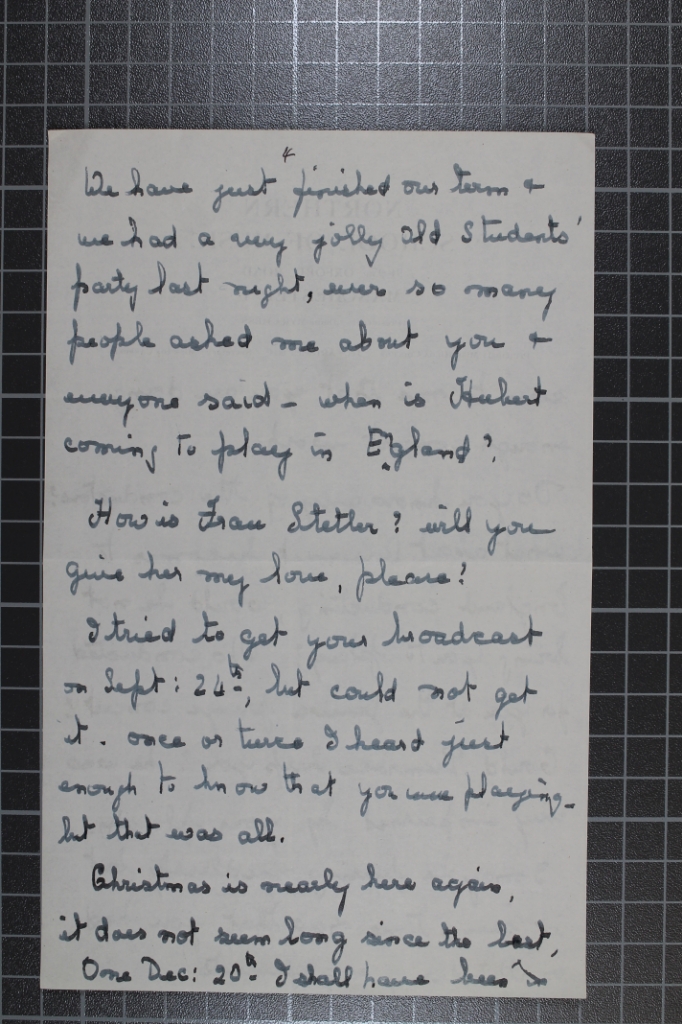 4
We have just finished our term &
we had a very jolly Old Students'
party last night, ever so many
people asked me about you &
everyone said – when is Hubert
coming to play in Egland?
How is Frau Stetler? will you
give her my love, please?
I tried to get your broadcast
on Sept: 24th, but could not get
it. once or twice I heard just
enough to know that you were playing –
but that was all.
Christmas is nearly here again,
it does not seem long since the last,
One Dec: 20th I shall have been in